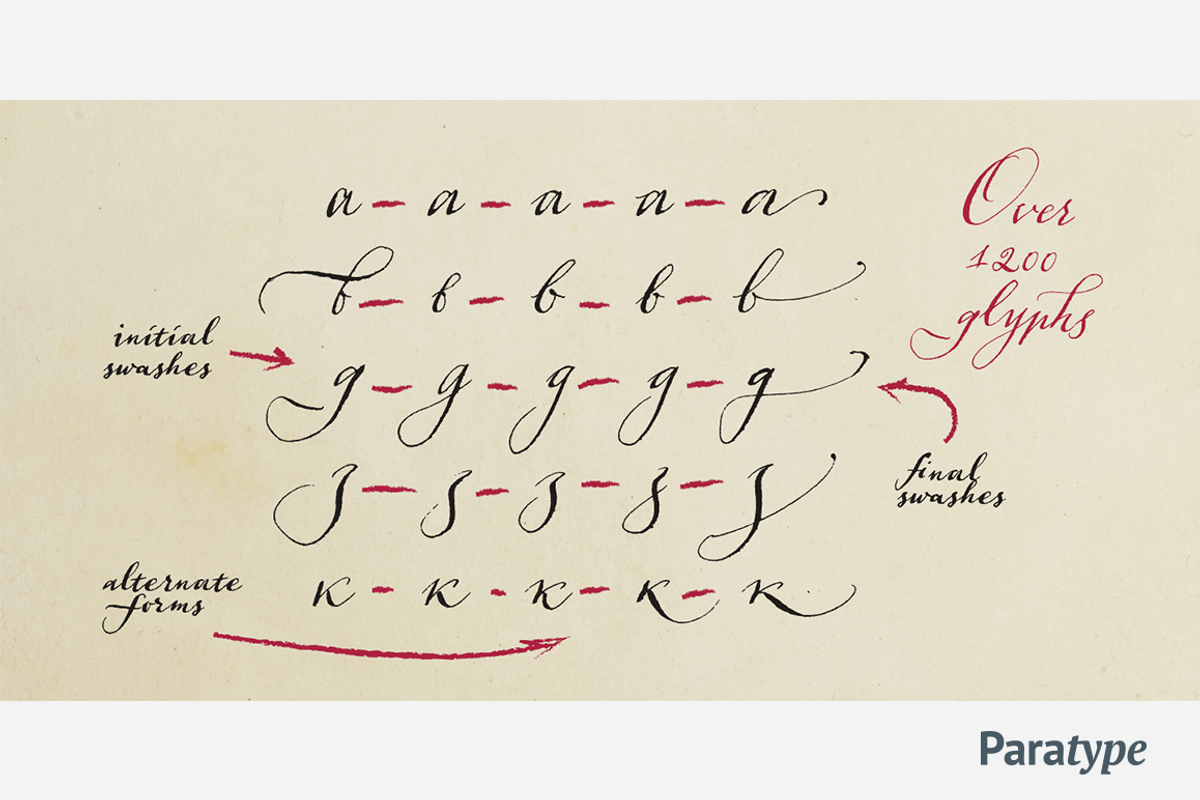 а – а – а – а – а
в – в – в – в – в
д – д – д – д – д
з – з – з – з – з
к – к – к – к – к
initial
swashes
alternate
forms
Over
1200
glyphs
final
swashes
Paratype